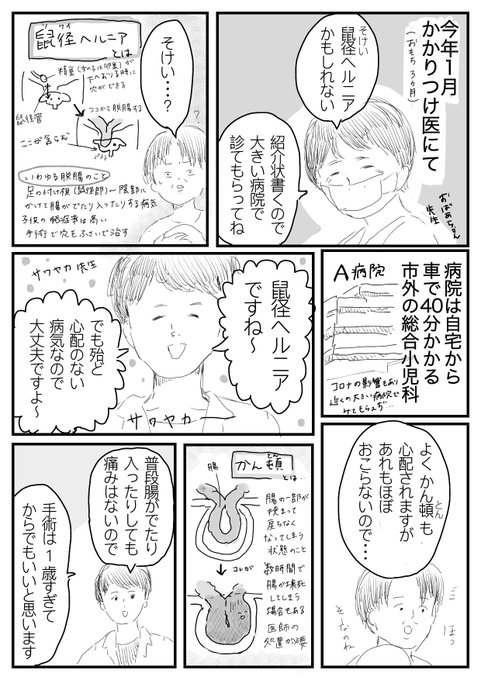 今年1月
かかりつけ医にて
(おもち3ヵ月)
鼠径ヘルニア
そけい
かもしれない
おばあちゃん
先生
紹介状書くので
大きい病院で
診てもらってね
そけい…?
鼠径ヘルニア
ケイ
とは
精巣(女の子は卵巣)が
下へおりる時に
穴ができる
ココから脱腸する
鼠径管
ここが膨らむ
いわゆる脱腸のこと
足の付け根(鼠径部)〜陰部に
かけて腸がでたり入ったりする病気
子供の発症率は高い
手術で穴をふさいで治す
病院は自宅から
車で40分かかる
市外の総合小児科
A病院
コロナの影響もあり
近くの大きい病院で
みてもらえず…
鼠径ヘルニア
ですね〜
サワヤカ先生
でも殆ど
心配のない
病気なので
大丈夫ですよ〜
サワヤカー
よくかん頓も
とん
心配されますが
あれもほぼ
おこらないので…
ほっ
そーなのね
かん頓
とん
とは
腸
腸の一部が
挟まって
戻らなく
なってしまう
状態のこと
コレが
数時間で
腸が壊死
してしまう
場合もある
医師の
処置が必要
普段腸がでたり
入ったりしても
痛みはないので
手術は1歳すぎて
からでもいいと思います